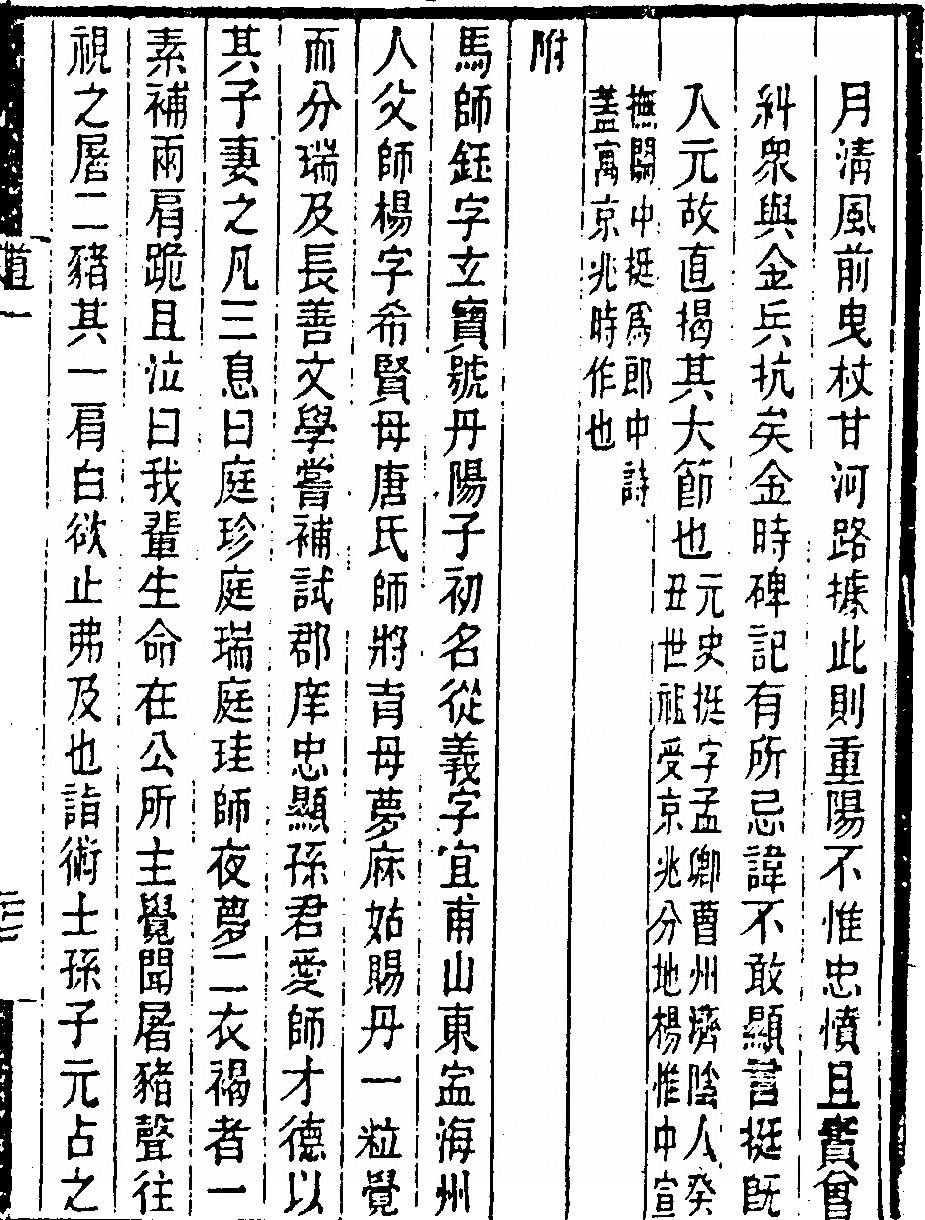 月清風前曳杖甘河路據此則重陽不惟忠憤且實曾
糾眾與金兵抗矣金時碑記有所忌諱不敢顯言挺既
入元故直揭其大節也元史挺字孟卿曹州濟陰人癸
丑世祖受京兆分地楊惟中宣
撫關中挺為郎中詩
蓋寓京兆時作也
附
馬師鈺字玄寶號丹陽子初名從義字宜甫山東寍海州
人父師楊字希賢母唐氏師將育母夢麻姑賜丹一粒覺
而分瑞及長善文學嘗補試郡庠忠顯孫君愛師才德以
其子妻之凡三息曰庭珍庭瑞庭珪師夜夢二衣褐者一
素補兩肩跪且泣曰我輩生命在公所主覺聞屠豬聲往
視之屠二豬其一肩白欲止弗及也詣術士孫子元占之
道一
三